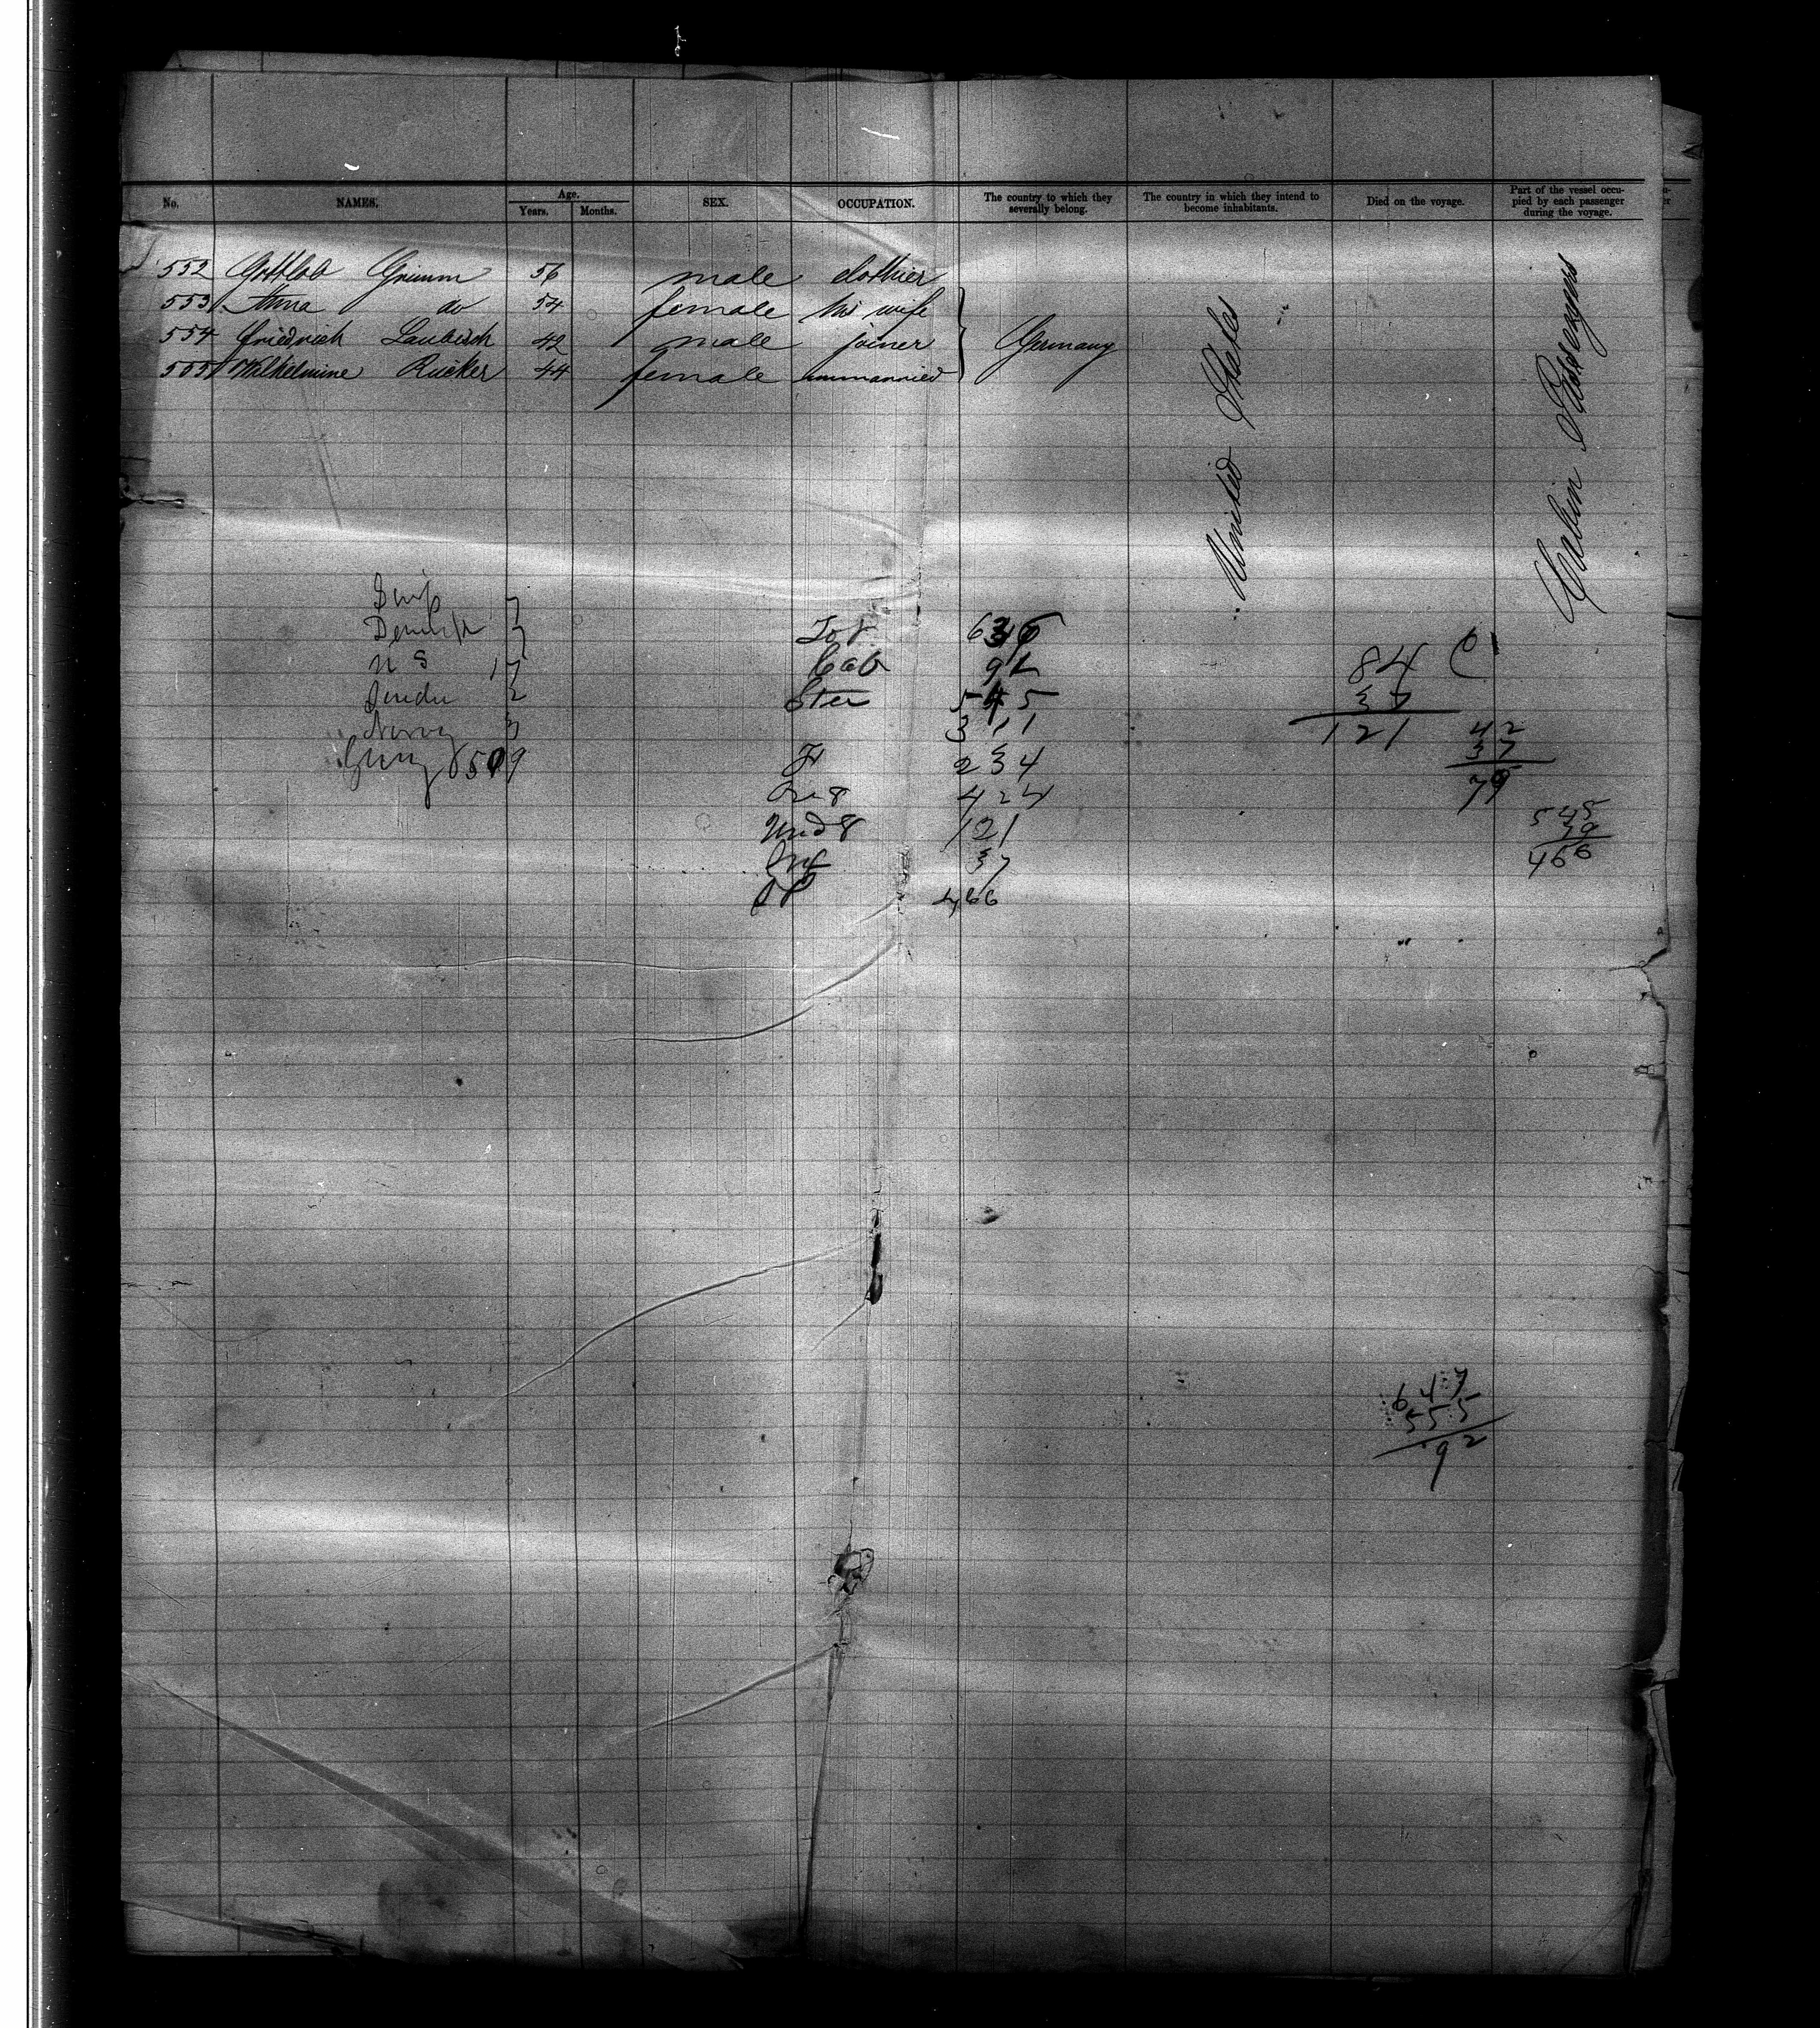 No. NAMES. Age. Years. Months. SEX. OCCUPATION. The country to which they severally belong. The country in which they intend to become inhabitants. Died on the voyage. Part of the vessel occupied by each passenger during the voyage.
552 Gottlob Grumm 56 male clothier
553 Anna do 54 female his wife
554 Friedrich Laubisch 42 male joiner
555 Wilhelmine Rücker 44 female unmarried
Germany
United States
Cabin Passengers
7
7
17
2
3
Tot
Cab 91
Ster 545
311
F 234
Ov 8 424
Und 8 121
Inf 37
466
84 C
37
121
42
37
79
545
79
466
647
555
92